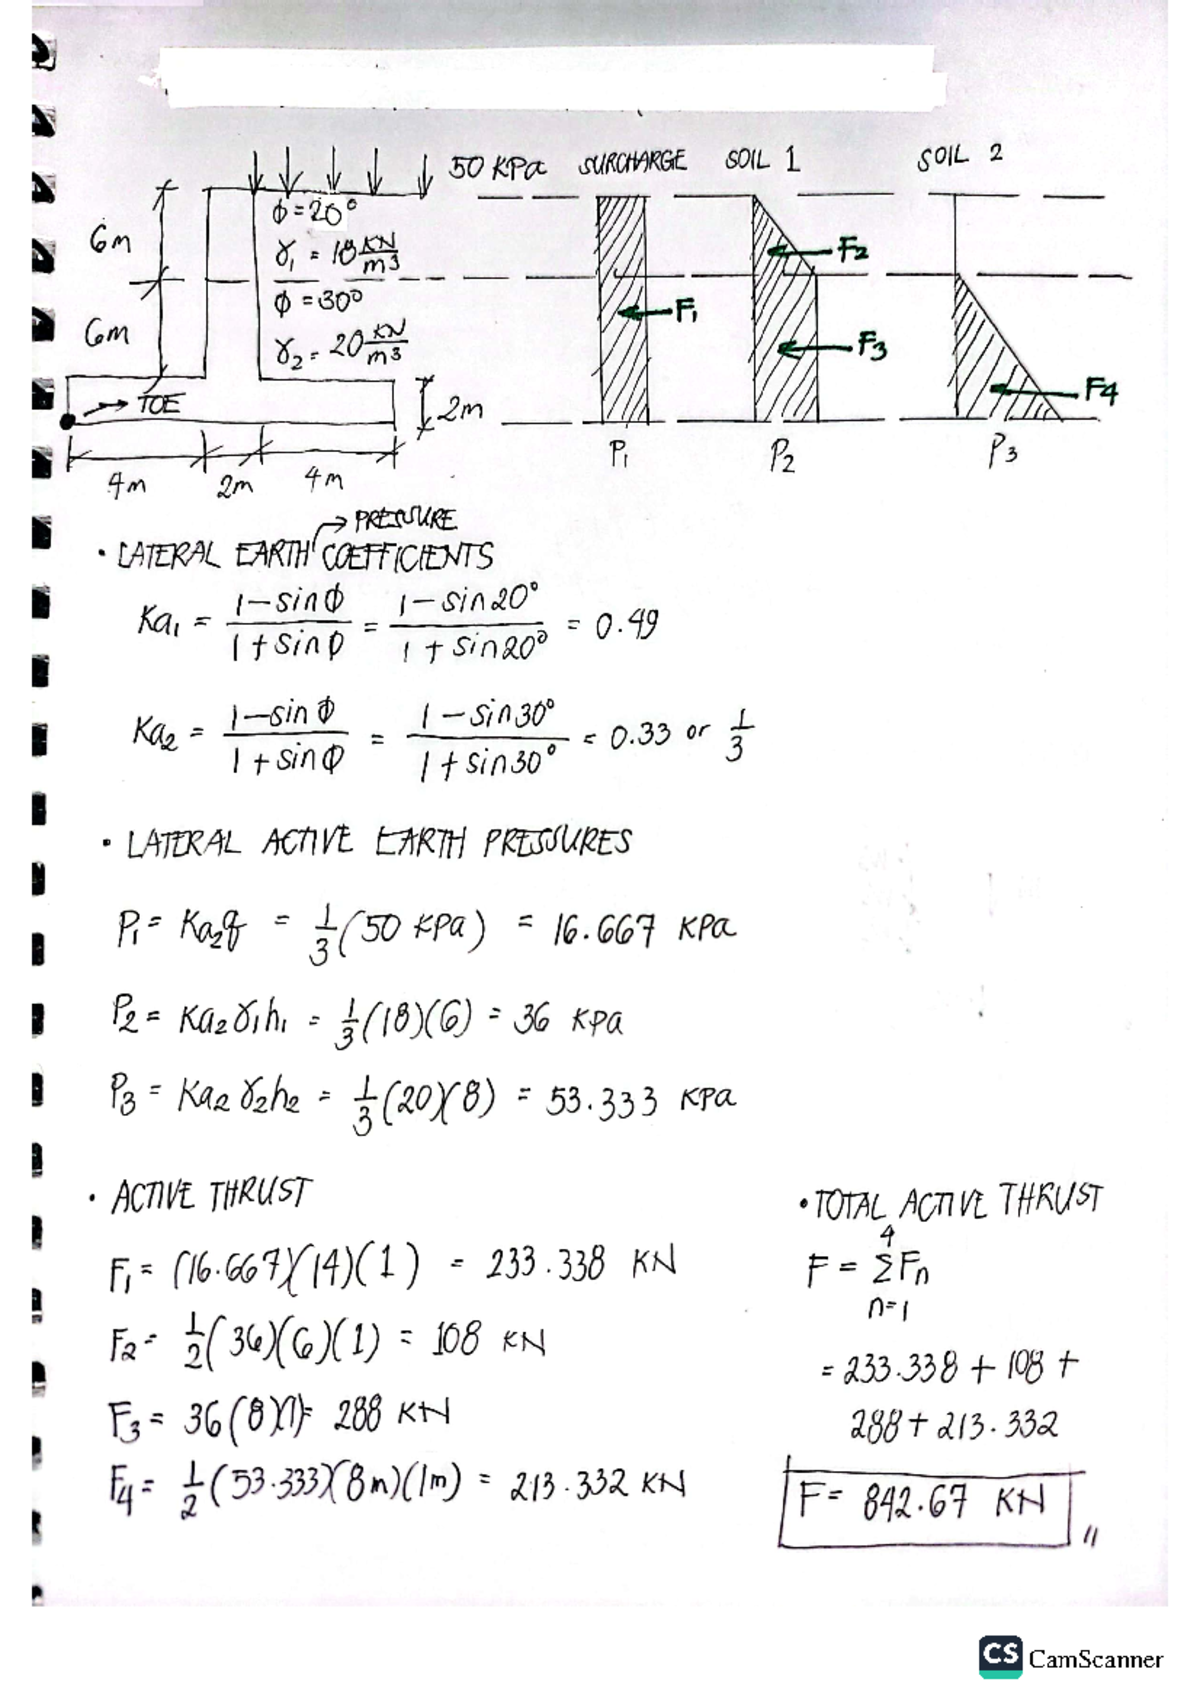 50 KPa SURCHARGE SOIL 1 SOIL 2
6m
ϕ = 20°
γ₁ = 18 KN/m3
F2
ϕ = 30°
6m
γ₂ = 20 KN/m3
F₁
F3
F4
TOE
2m
P₁ P2 P3
4m 2m 4m
→ PRESSURE
• LATERAL EARTH COEFFICIENTS
Ka₁ = 1-sinϕ / 1+sinϕ = 1-sin20° / 1+sin20° = 0.49
Ka2 = 1-sinϕ / 1+sinϕ = 1-sin30° / 1+sin30° = 0.33 or 1/3
• LATERAL ACTIVE EARTH PRESSURES
P₁ = Ka2q = 1/3(50 KPa) = 16.667 KPa
P2 = Ka2 γ₁h₁ = 1/3(18)(6) = 36 KPa
P3 = Ka2 γ2h2 = 1/3(20)(8) = 53.333 KPa
• ACTIVE THRUST
F₁ = (16.667)(14)(1) = 233.338 KN
F2 = 1/2(36)(6)(1) = 108 KN
F3 = 36(8)(1)= 288 KN
F4 = 1/2(53.333)(8m)(1m) = 213.332 KN
• TOTAL ACTIVE THRUST
4
F = ΣFn
n=1
= 233.338 + 108 +
288 + 213.332
F = 842.67 KN
CS CamScanner